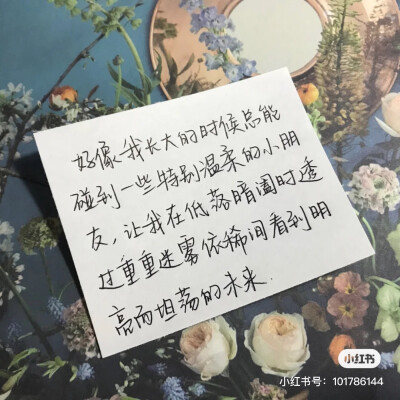 好像我长大的时候总能
碰到一些特别温柔的小朋
友，让我在低落暗阖时透
过重重迷雾依稀间看到明
亮而坦荡的未来.
小红书
小红书号：101786144